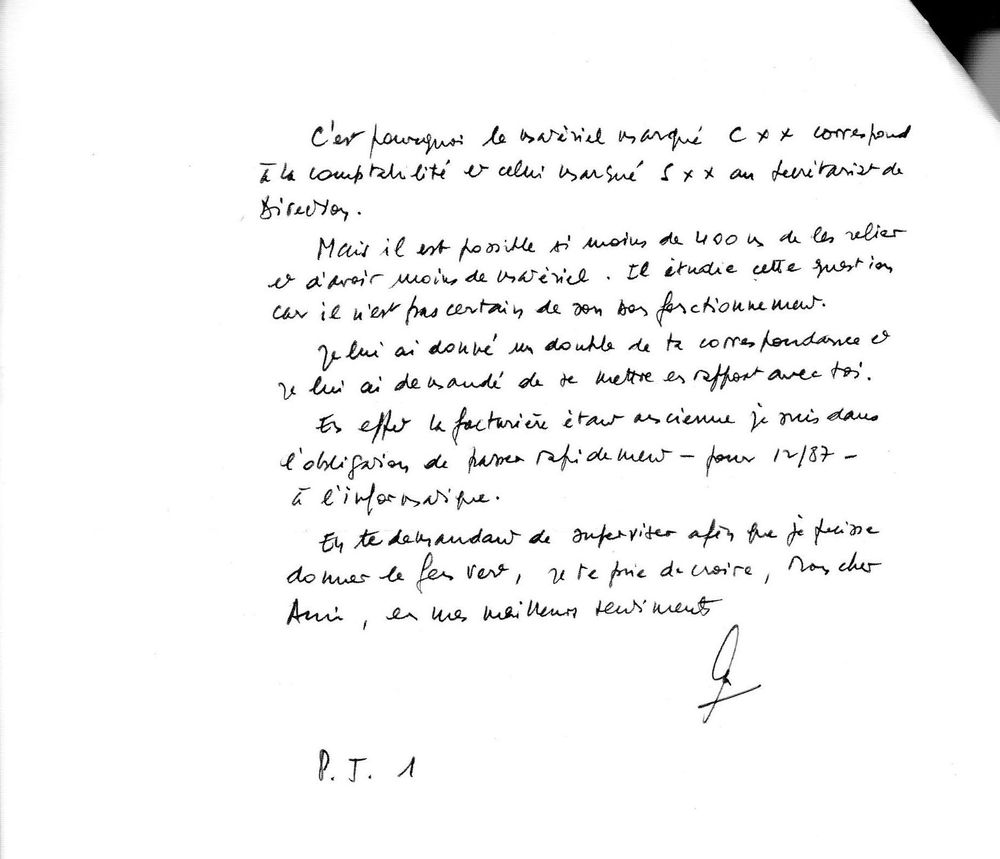 C'est pourquoi le matériel marqué C x x correspond
à la comptabilité et celui marqué S x x au secrétariat de
Direction.
Mais il est possible si moins de 400 m de les relier
et d'avoir moins de matériel. Il étudie cette question
car il n'est pas certain de son bon fonctionnement.
Je lui ai donné un double de ta correspondance et
je lui ai demandé de se mettre en rapport avec toi.
En effet la facturière étant ancienne je suis dans
l'obligation de passer rapidement - pour 12/87 -
à l'informatique.
En te demandant de superviser afin que je puisse
donner le feu vert, je te prie de croire, mon cher
Ami, en mes meilleurs sentiments
P.J. 1